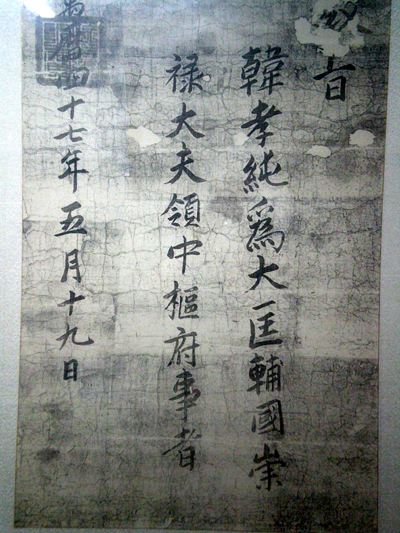 旨
韓孝純爲大匡輔國崇
禄大夫領中樞府事者
萬曆四十七年五月十九日